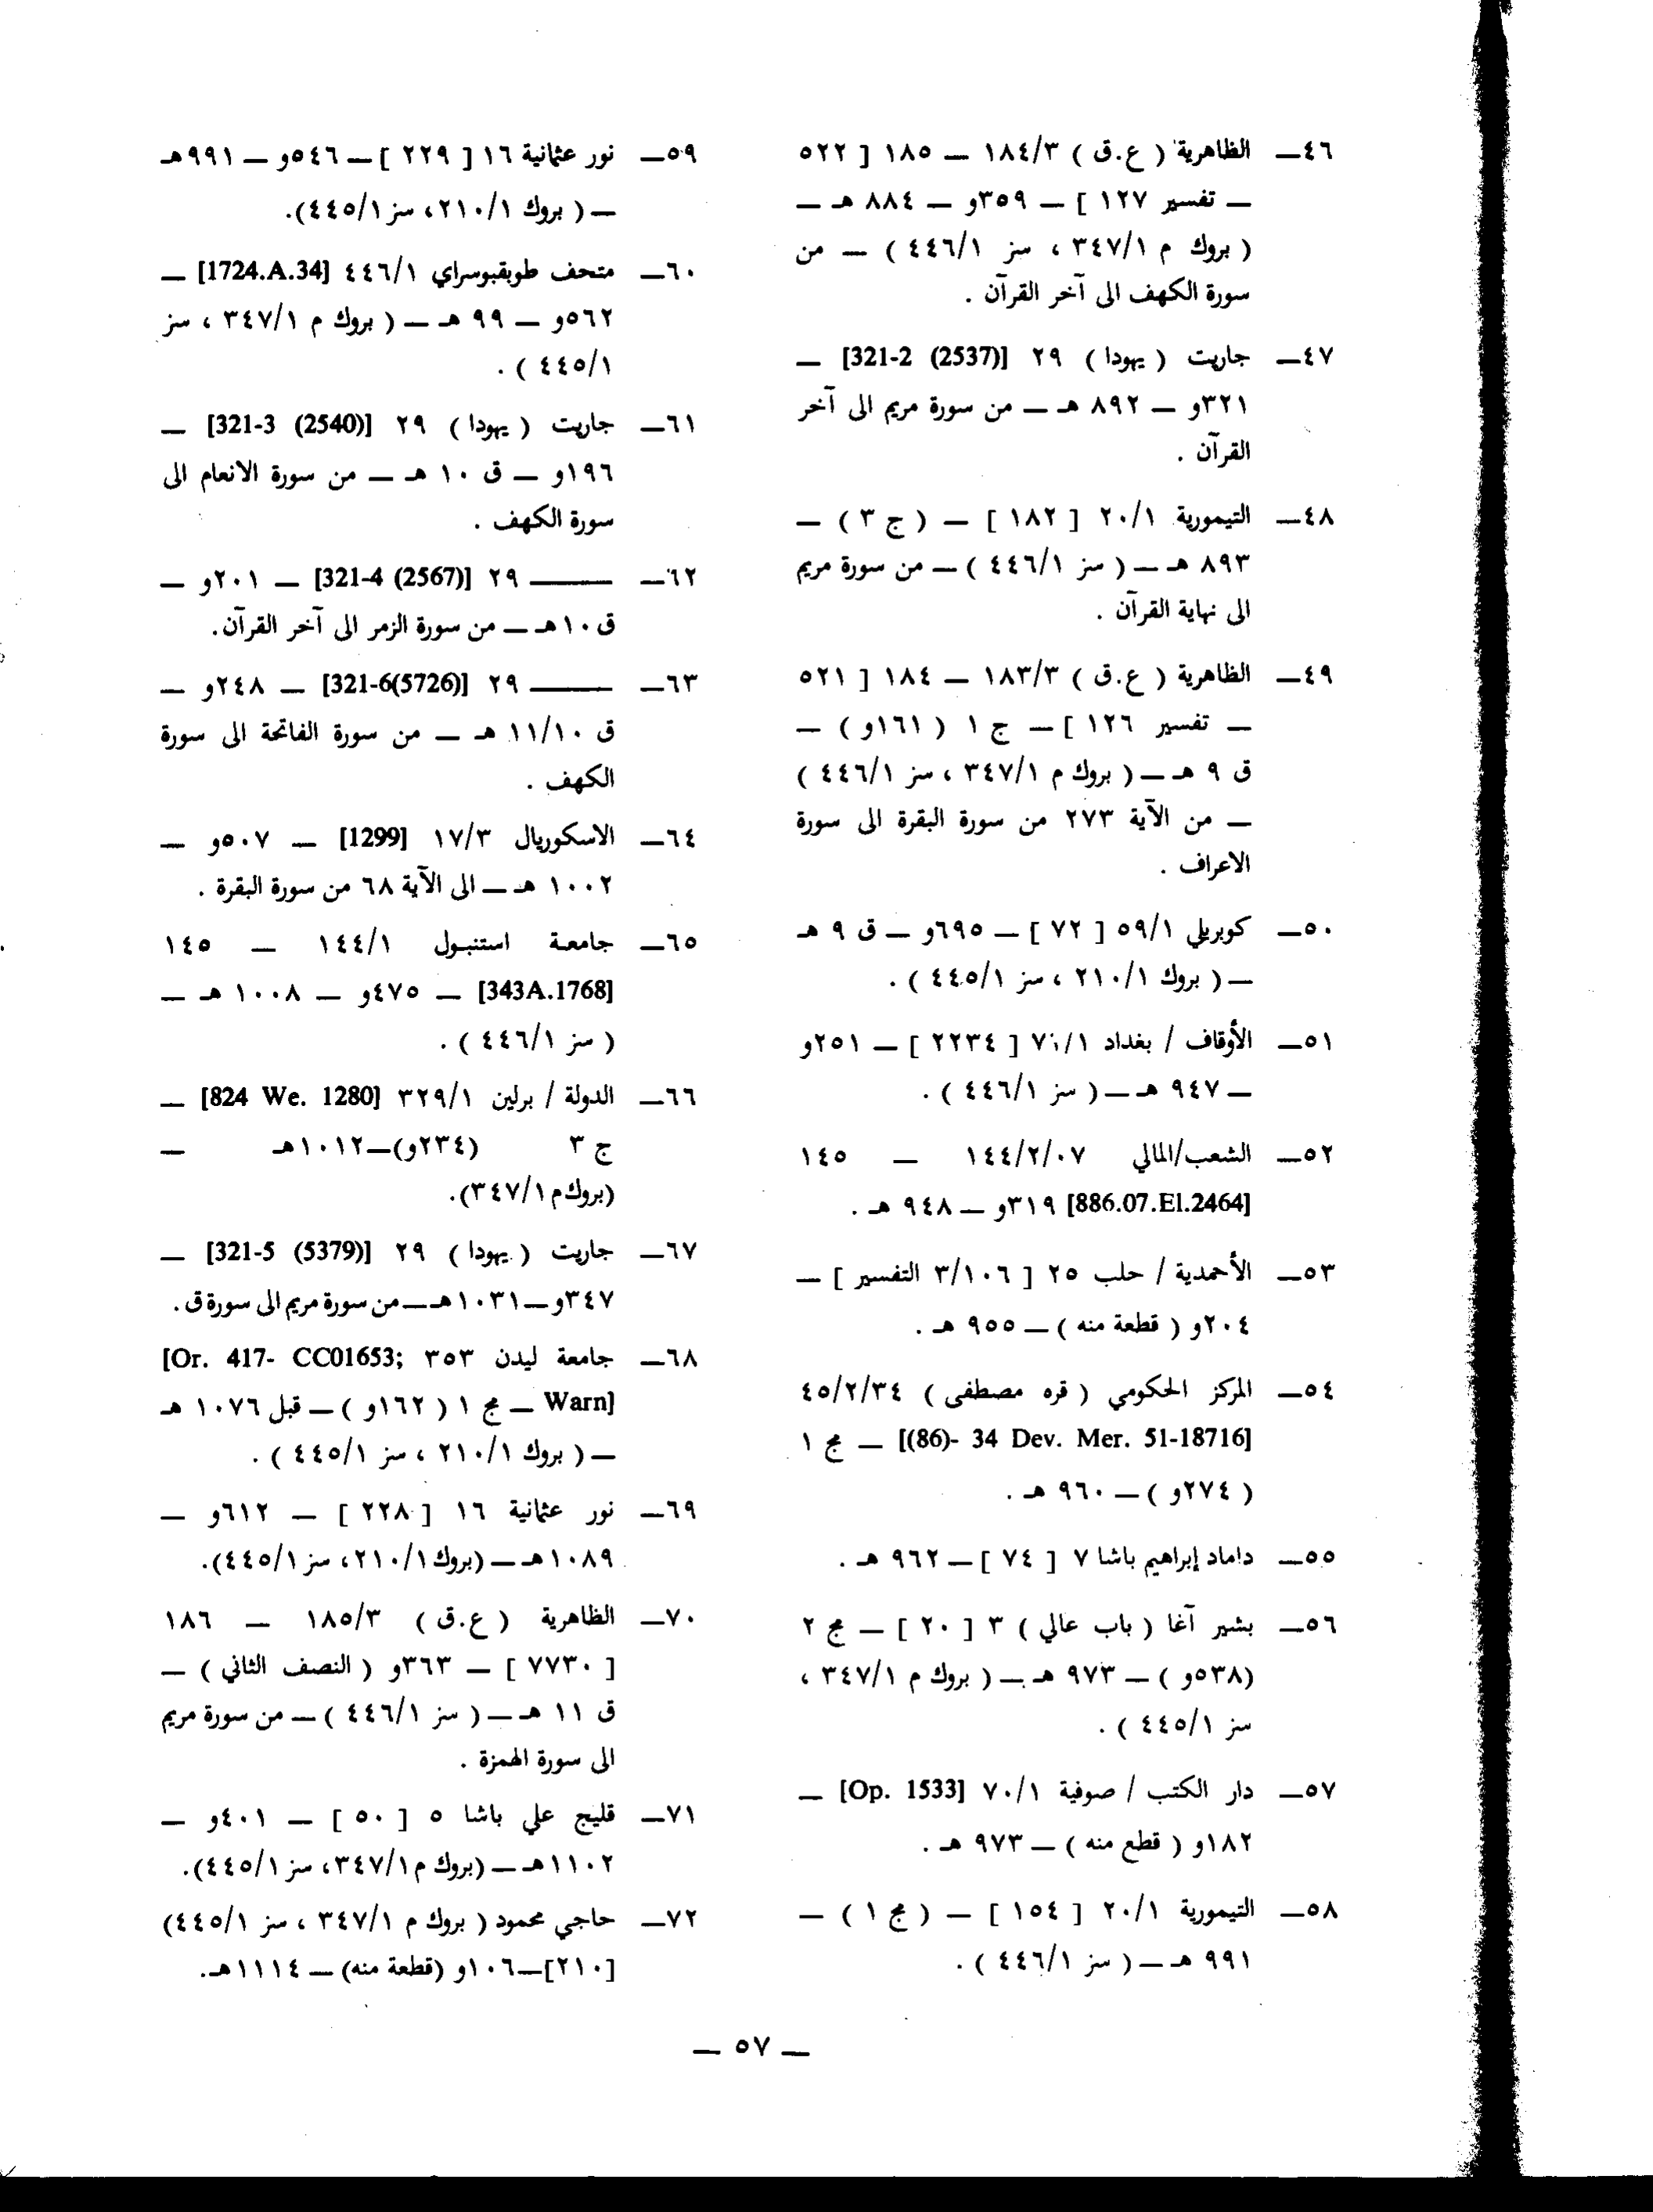 ٤٦— الظاهرية ( ع.ق ) ١٨٤/٣ — ١٨٥ [ ٥٢٢
— تفسير ١٢٧ ] — ٣٥٩و — ٨٨٤ هـ —
( بروك م ٣٤٧/١ ، سز ٤٤٦/١ ) — من
سورة الكهف الى آخر القرآن .
٤٧— جاريت ( يهودا ) ٢٩ [321-2 (2537)] —
٣٢١و — ٨٩٢ هـ — من سورة مريم الى آخر
القرآن .
٤٨— التيمورية ٢٠/١ [ ١٨٢ ] — ( ج ٣ ) —
٨٩٣ هـ — ( سز ٤٤٦/١ ) — من سورة مريم
الى نهاية القرآن .
٤٩— الظاهرية ( ع.ق ) ١٨٣/٣ — ١٨٤ [ ٥٢١
— تفسير ١٢٦ ] — ج ١ ( ١٦١و ) —
ق ٩ هـ — ( بروك م ٣٤٧/١ ، سز ٤٤٦/١ )
— من الآية ٢٧٣ من سورة البقرة الى سورة
الاعراف .
٥٠— كوبريلي ٥٩/١ [ ٧٢ ] — ٦٩٥و — ق ٩ هـ
— ( بروك ٢١٠/١ ، سز ٤٤٥/١ ) .
٥١— الأوقاف / بغداد [ ٢٢٣٤ ] — ٢٥١و
— ٩٤٧ هـ — ( سز ٤٤٦/١ ) .
٥٢— الشعب/المالي ١٤٤/٢/٠٧ — ١٤٥
[886.07.El.2464] ٣١٩و — ٩٤٨ هـ .
٥٣— الأحمدية / حلب ٢٥ [ ٣/١٠٦ التفسير ] —
٢٠٤و ( قطعة منه ) — ٩٥٥ هـ .
٥٤— المركز الحكومي ( قره مصطفى ) ٤٥/٢/٣٤
[(86)- 34 Dev. Mer. 51-18716] — مج ١
( ٢٧٤و ) — ٩٦٠ هـ .
٥٥— داماد إبراهيم باشا ٧ [ ٧٤ ] — ٩٦٢ هـ .
٥٦— بشير آغا ( باب عالي ) ٣ [ ٢٠ ] — مج ٢
(٥٣٨و ) — ٩٧٣ هـ — ( بروك م ٣٤٧/١ ،
سز ٤٤٥/١ ) .
٥٧— دار الكتب / صوفية ٧٠/١ [Op. 1533] —
١٨٢و ( قطع منه ) — ٩٧٣ هـ .
٥٨— التيمورية ٢٠/١ [ ١٥٤ ] — ( مج ١ ) —
٩٩١ هـ — ( سز ٤٤٦/١ ) .
٥٩— نور عثمانية ١٦ [ ٢٢٩ ] — ٥٤٦و — ٩٩١هـ
— ( بروك ٢١٠/١، سز ٤٤٥/١).
٦٠— متحف طوبقبوسراي ٤٤٦/١ [1724.A.34] —
٥٦٢و — ٩٩ هـ — ( بروك م ٣٤٧/١ ، سز
٤٤٥/١ ) .
٦١— جاريت ( يهودا ) ٢٩ [321-3 (2540)] —
١٩٦و — ق ١٠ هـ — من سورة الانعام الى
سورة الكهف .
٦٢— ——— ٢٩ [321-4 (2567)] — ٢٠١و —
ق ١٠هـ — من سورة الزمر الى آخر القرآن.
٦٣— ——— ٢٩ [321-6(5726)] — ٢٤٨و —
ق ١١/١٠ هـ — من سورة الفاتحة الى سورة
الكهف .
٦٤— الاسكوريال ١٧/٣ [1299] — ٥٠٧و —
١٠٠٢ هـ — الى الآية ٦٨ من سورة البقرة .
٦٥— جامعة استنبول ١٤٤/١ — ١٤٥
[343A.1768] — ٤٧٥و — ١٠٠٨ هـ —
( سز ٤٤٦/١ ) .
٦٦— الدولة / برلين ٣٢٩/١ [824 We. 1280] —
ج ٣ (٢٣٤و)—١٠١٢هـ —
(بروك م ٣٤٧/١).
٦٧— جاريت ( يهودا ) ٢٩ [321-5 (5379)] —
٣٤٧و—١٠٣١هـ—من سورة مريم الى سورة ق.
٦٨— جامعة ليدن ٣٥٣ [Or. 417- CC01653;
Warn] — مج ١ ( ١٦٢و ) — قبل ١٠٧٦ هـ
— ( بروك ٢١٠/١ ، سز ٤٤٥/١ ) .
٦٩— نور عثمانية ١٦ [ ٢٢٨ ] — ٦١٢و —
١٠٨٩هـ — (بروك ٢١٠/١، سز ٤٤٥/١).
٧٠— الظاهرية ( ع.ق ) ١٨٥/٣ — ١٨٦
[ ٧٧٣٠ ] — ٣٦٣و ( النصف الثاني ) —
ق ١١ هـ — ( سز ٤٤٦/١ ) — من سورة مريم
الى سورة الهمزة .
٧١— قليج علي باشا ٥ [ ٥٠ ] — ٤٠١و —
١١٠٢هـ — (بروك م ٣٤٧/١، سز ٤٤٥/١).
٧٢— حاجي محمود ( بروك م ٣٤٧/١ ، سز ٤٤٥/١)
[٢١٠]—١٠٦و (قطعة منه) — ١١١٤هـ.
— ٥٧ —